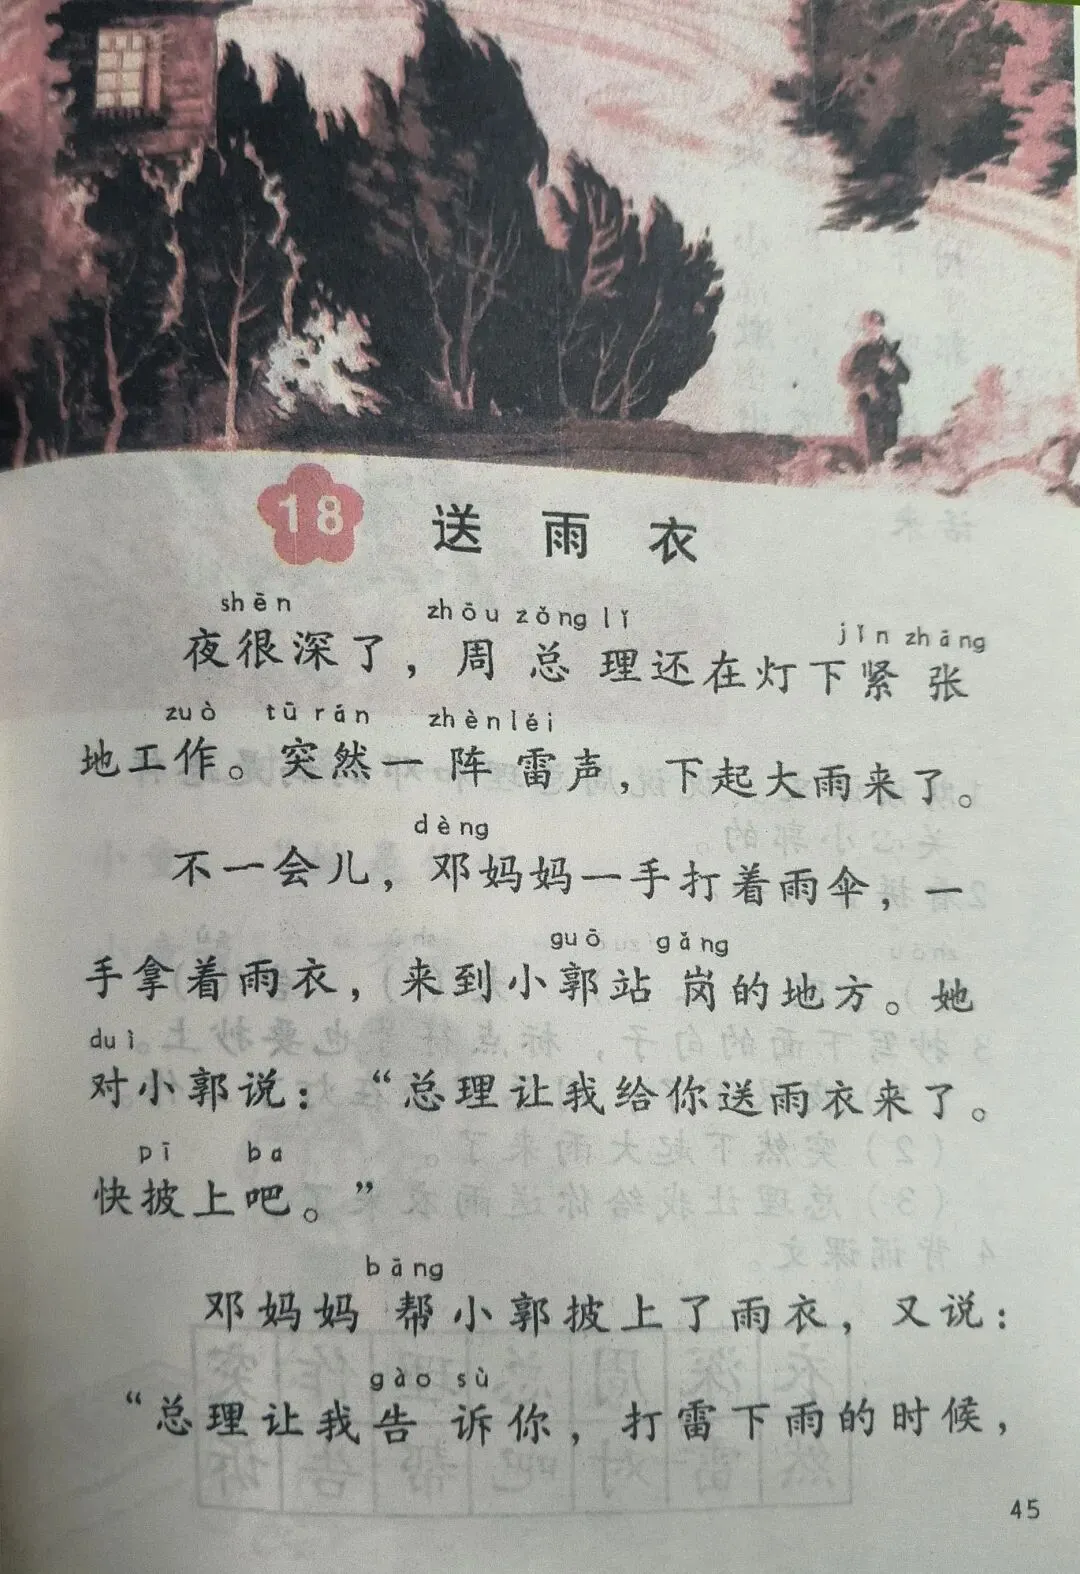 18 送雨衣
shēn zhōu zǒng lǐ jǐn zhāng
夜很深了，周总理还在灯下紧张
zuò tū rán zhèn léi
地工作。突然一阵雷声，下起大雨来了。
dèng
不一会儿，邓妈妈一手打着雨伞，一
guō gǎng
手拿着雨衣，来到小郭站岗的地方。她
duì
对小郭说：“总理让我给你送雨衣来了。
pī ba
快披上吧。”
bāng
邓妈妈帮小郭披上了雨衣，又说：
gào sù
“总理让我告诉你，打雷下雨的时候，
45